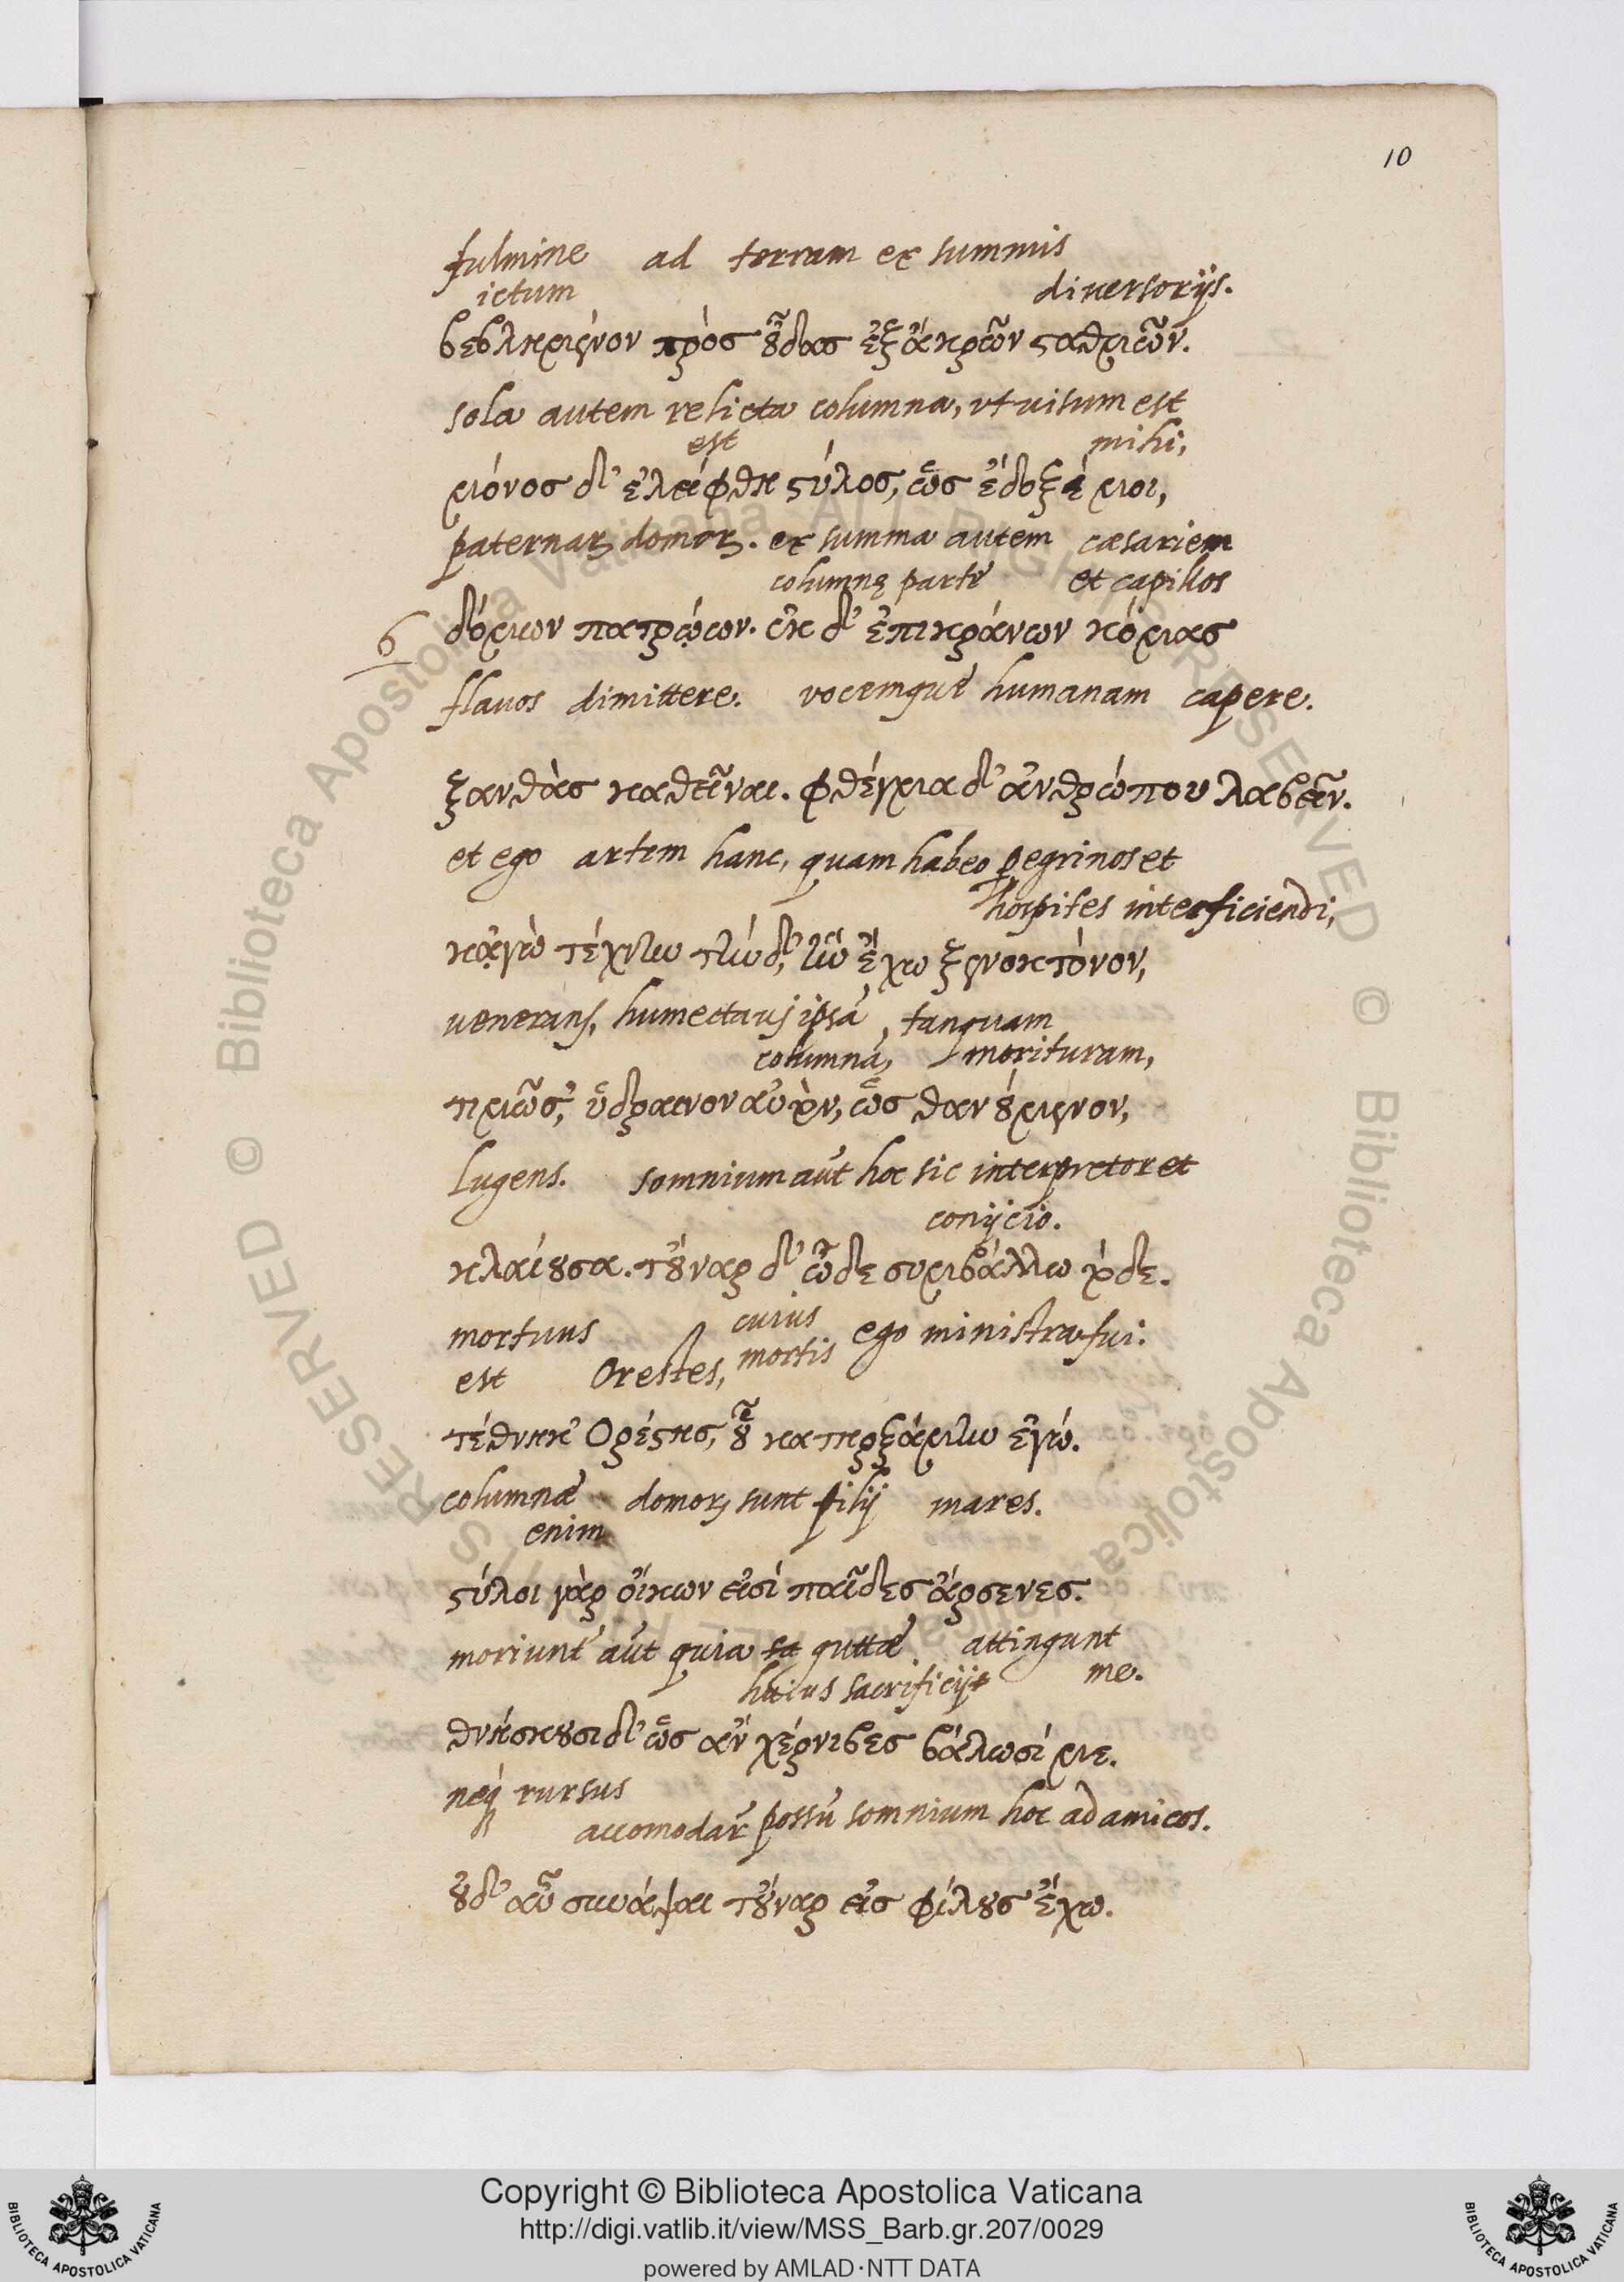 10
fulmine ad terram ex summis
ictum diversorijs.
βεβλημένον πρὸς οὖδας ἐξ ἄκρων σταθμῶν.
sola autem relicta columna, ut uisum est
est mihi,
μόνος δ' ἐλείφθη στύλος, ὡς ἔδοξέ μοι,
paternarꝝ domorꝝ. ex summa autem cæsariem
columnę parte et capillos
6 δόμων πατρῴων. ἐκ δ' ἐπικράνων κόμας
flavos dimittere. vocemque humanam capere.
ξανθὰς καθεῖναι. φθέγμα δ' ἀνθρώπου λαβεῖν.
et ego artem hanc, quam habeo pegrinos et
hospites interficiendi,
κᾀγὼ τέχνην τήνδ', ἣν ἔχω ξενοκτόνον,
uenerans, humectavi ipsã, tanquam
columnã, morituram,
τιμῶσ', ὕδραινον αὐτὸν, ὡς θανούμενον,
Lugens. somnium aūt hoc sic interpretor et
conijcio.
κλαίουσα. τοὔναρ δ' ὧδε συμβάλλω τόδε.
mortuus cuius ego ministra fui.
est Orestes, mortis
τέθνηκ' Ὀρέστης, οὗ κατηρξάμην ἐγώ.
columnæ domorꝝ sunt filij mares.
enim
στύλοι γὰρ οἴκων εἰσὶ παῖδες ἄρσενες.
moriunt' aūt quia guttæ attingunt
huius sacrificij me.
θνήσκουσι δ' ὡς ἂν χέρνιβες βάλωσί με.
neq; rursus
accomodar̃ possũ somnium hoc ad amicos.
οὐδ' αὖ συνάψαι τοὔναρ εἰς φίλους ἔχω.
© Biblioteca Apostolica Vaticana ALL RIGHTS RESERVED
© Biblioteca Apostolica Vaticana ALL RIGHTS RESERVED
BIBLIOTECA APOSTOLICA VATICANA
Copyright © Biblioteca Apostolica Vaticana
http://digi.vatlib.it/view/MSS_Barb.gr.207/0029
powered by AMLAD·NTT DATA
BIBLIOTECA APOSTOLICA VATICANA